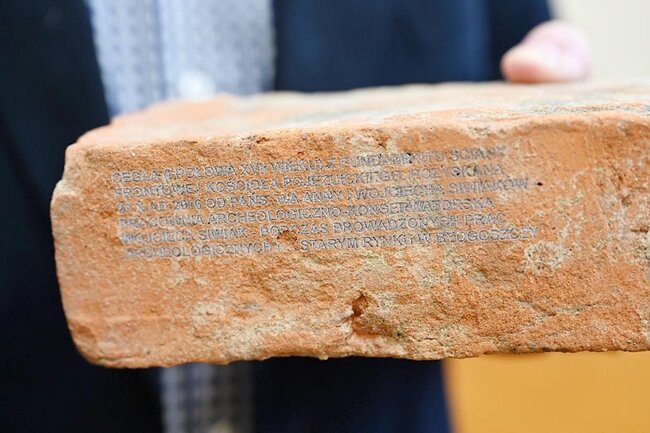 CEGŁA II POŁOWA XVII WIEKU Z FUNDAMENTU ŚCIANY
FRONTOWEJ KOŚCIOŁA POJEZUICKIEGO, POZYSKANA
X AD 2016 OD PAŃSTWA ANNY I WOJCIECHA SIWIAKÓW
PRACOWNIA ARCHEOLOGICZNO-KONSERWATORSKA
WOJCIECH SIWIAK PODCZAS PROWADZONYCH PRAC
ARCHEOLOGICZNYCH STARYM RYNKU W BYDGOSZCZY